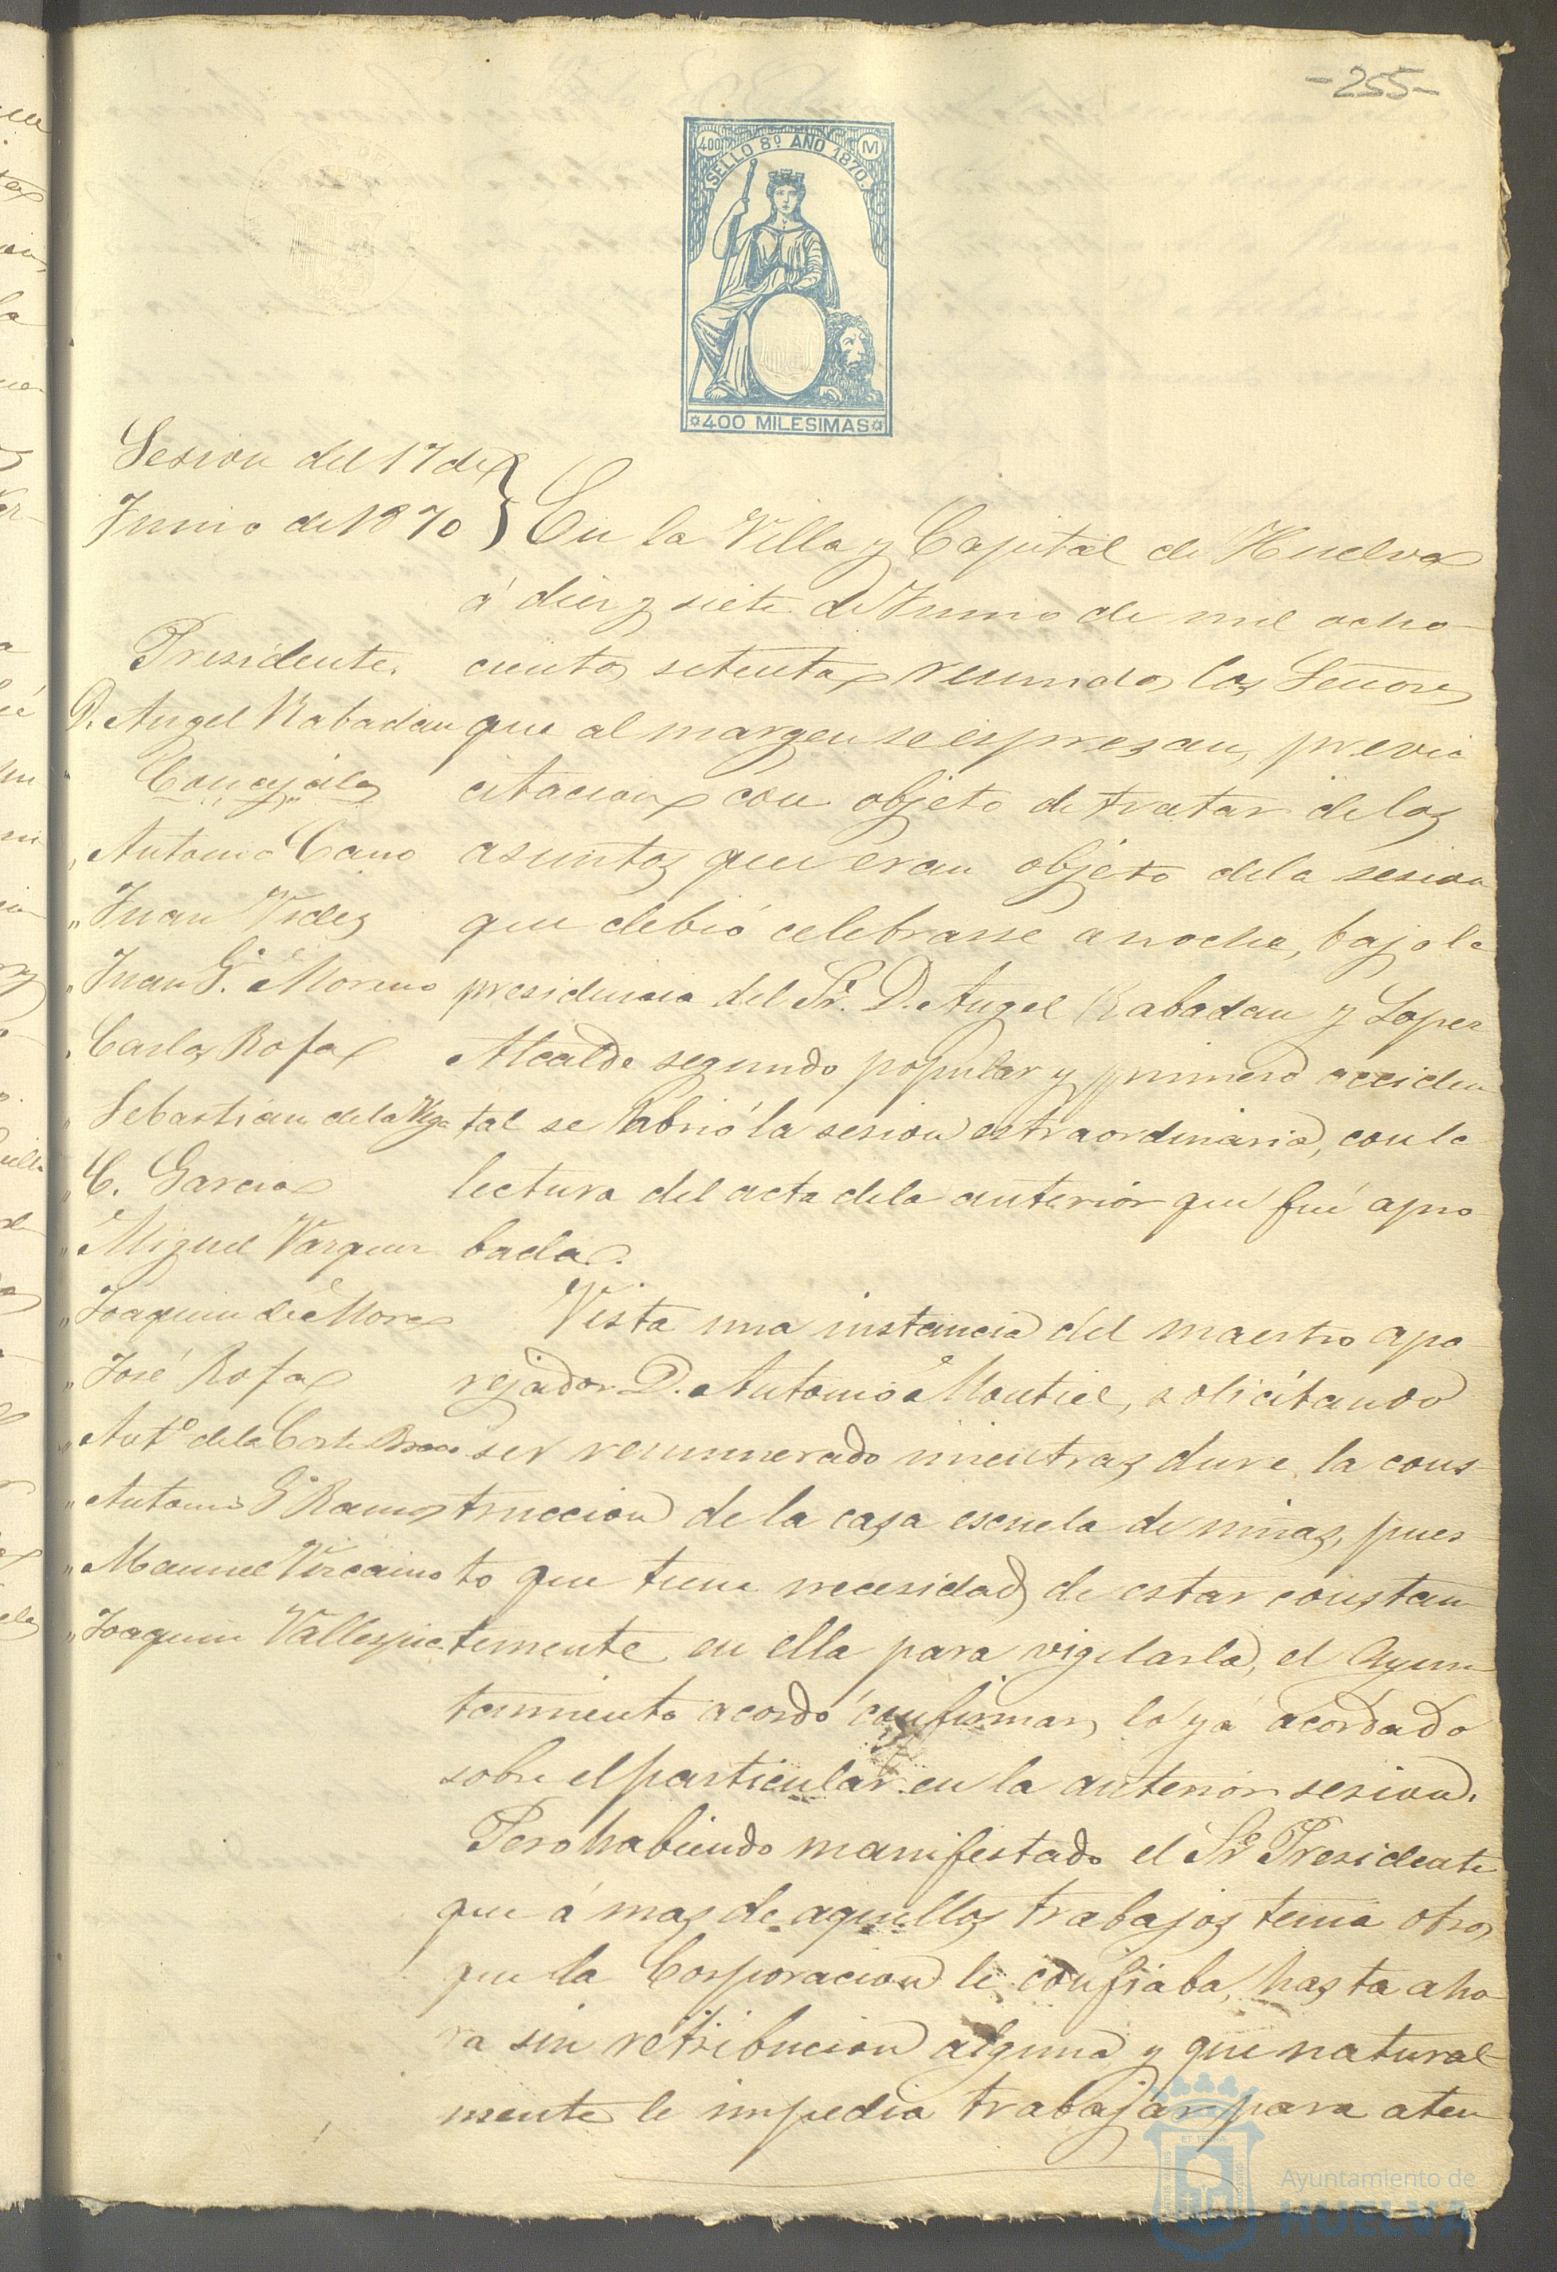 -255-
400 M
SELLO 8º AÑO 1870.
400 MILESIMAS
Sesion del 17 de
Junio de 1870
Presidente.
D. Angel Rabadan
Concejales
" Antonio Cano
" Juan Vides
" Juan G.ª Moreno
" Carlos Rofa
" Sebastian de la Vega
" C. Garcia
" Miguel Vazquez
" Joaquin de Mora
" José Rofa
" Ant.º de la Corte
" Antonio G.ª Ramos
" Manuel Vizcaino
" Joaquin Vallespin
En la Villa y Capital de Huelva
á diez y siete de Junio de mil ocho-
cientos setenta reunidos los Señores
que al margen se espresan, previa
citacion con objeto de tratar de los
asuntos que eran objeto de la sesion
que debió celebrarse anoche, bajo la
presidencia del Sr. D. Angel Rabadan y Lopez
Alcalde segundo popular y primero acciden
tal se abrió la sesion estraordinaria, con la
lectura del acta de la anterior que fué apro
bada.
Vista una instancia del maestro apa-
rejador D. Antonio Montiel, solicitando
ser remunerado mientras dure la cons-
truccion de la casa escuela de niñas, pues-
to que tiene necesidad de estar constan
temente en ella para vigilarla, el Ayun-
tamiento acordó confirmar lo yá acordado
sobre el particular en la anterior sesion.
Pero habiendo manifestado el Sr Presidente
que á mas de aquellos trabajos tenia otros
que la Corporacion le confiaba, hasta aho-
ra sin retribucion alguna y que natural-
mente le impedia trabajar para aten
Ayuntamiento de
HUELVA